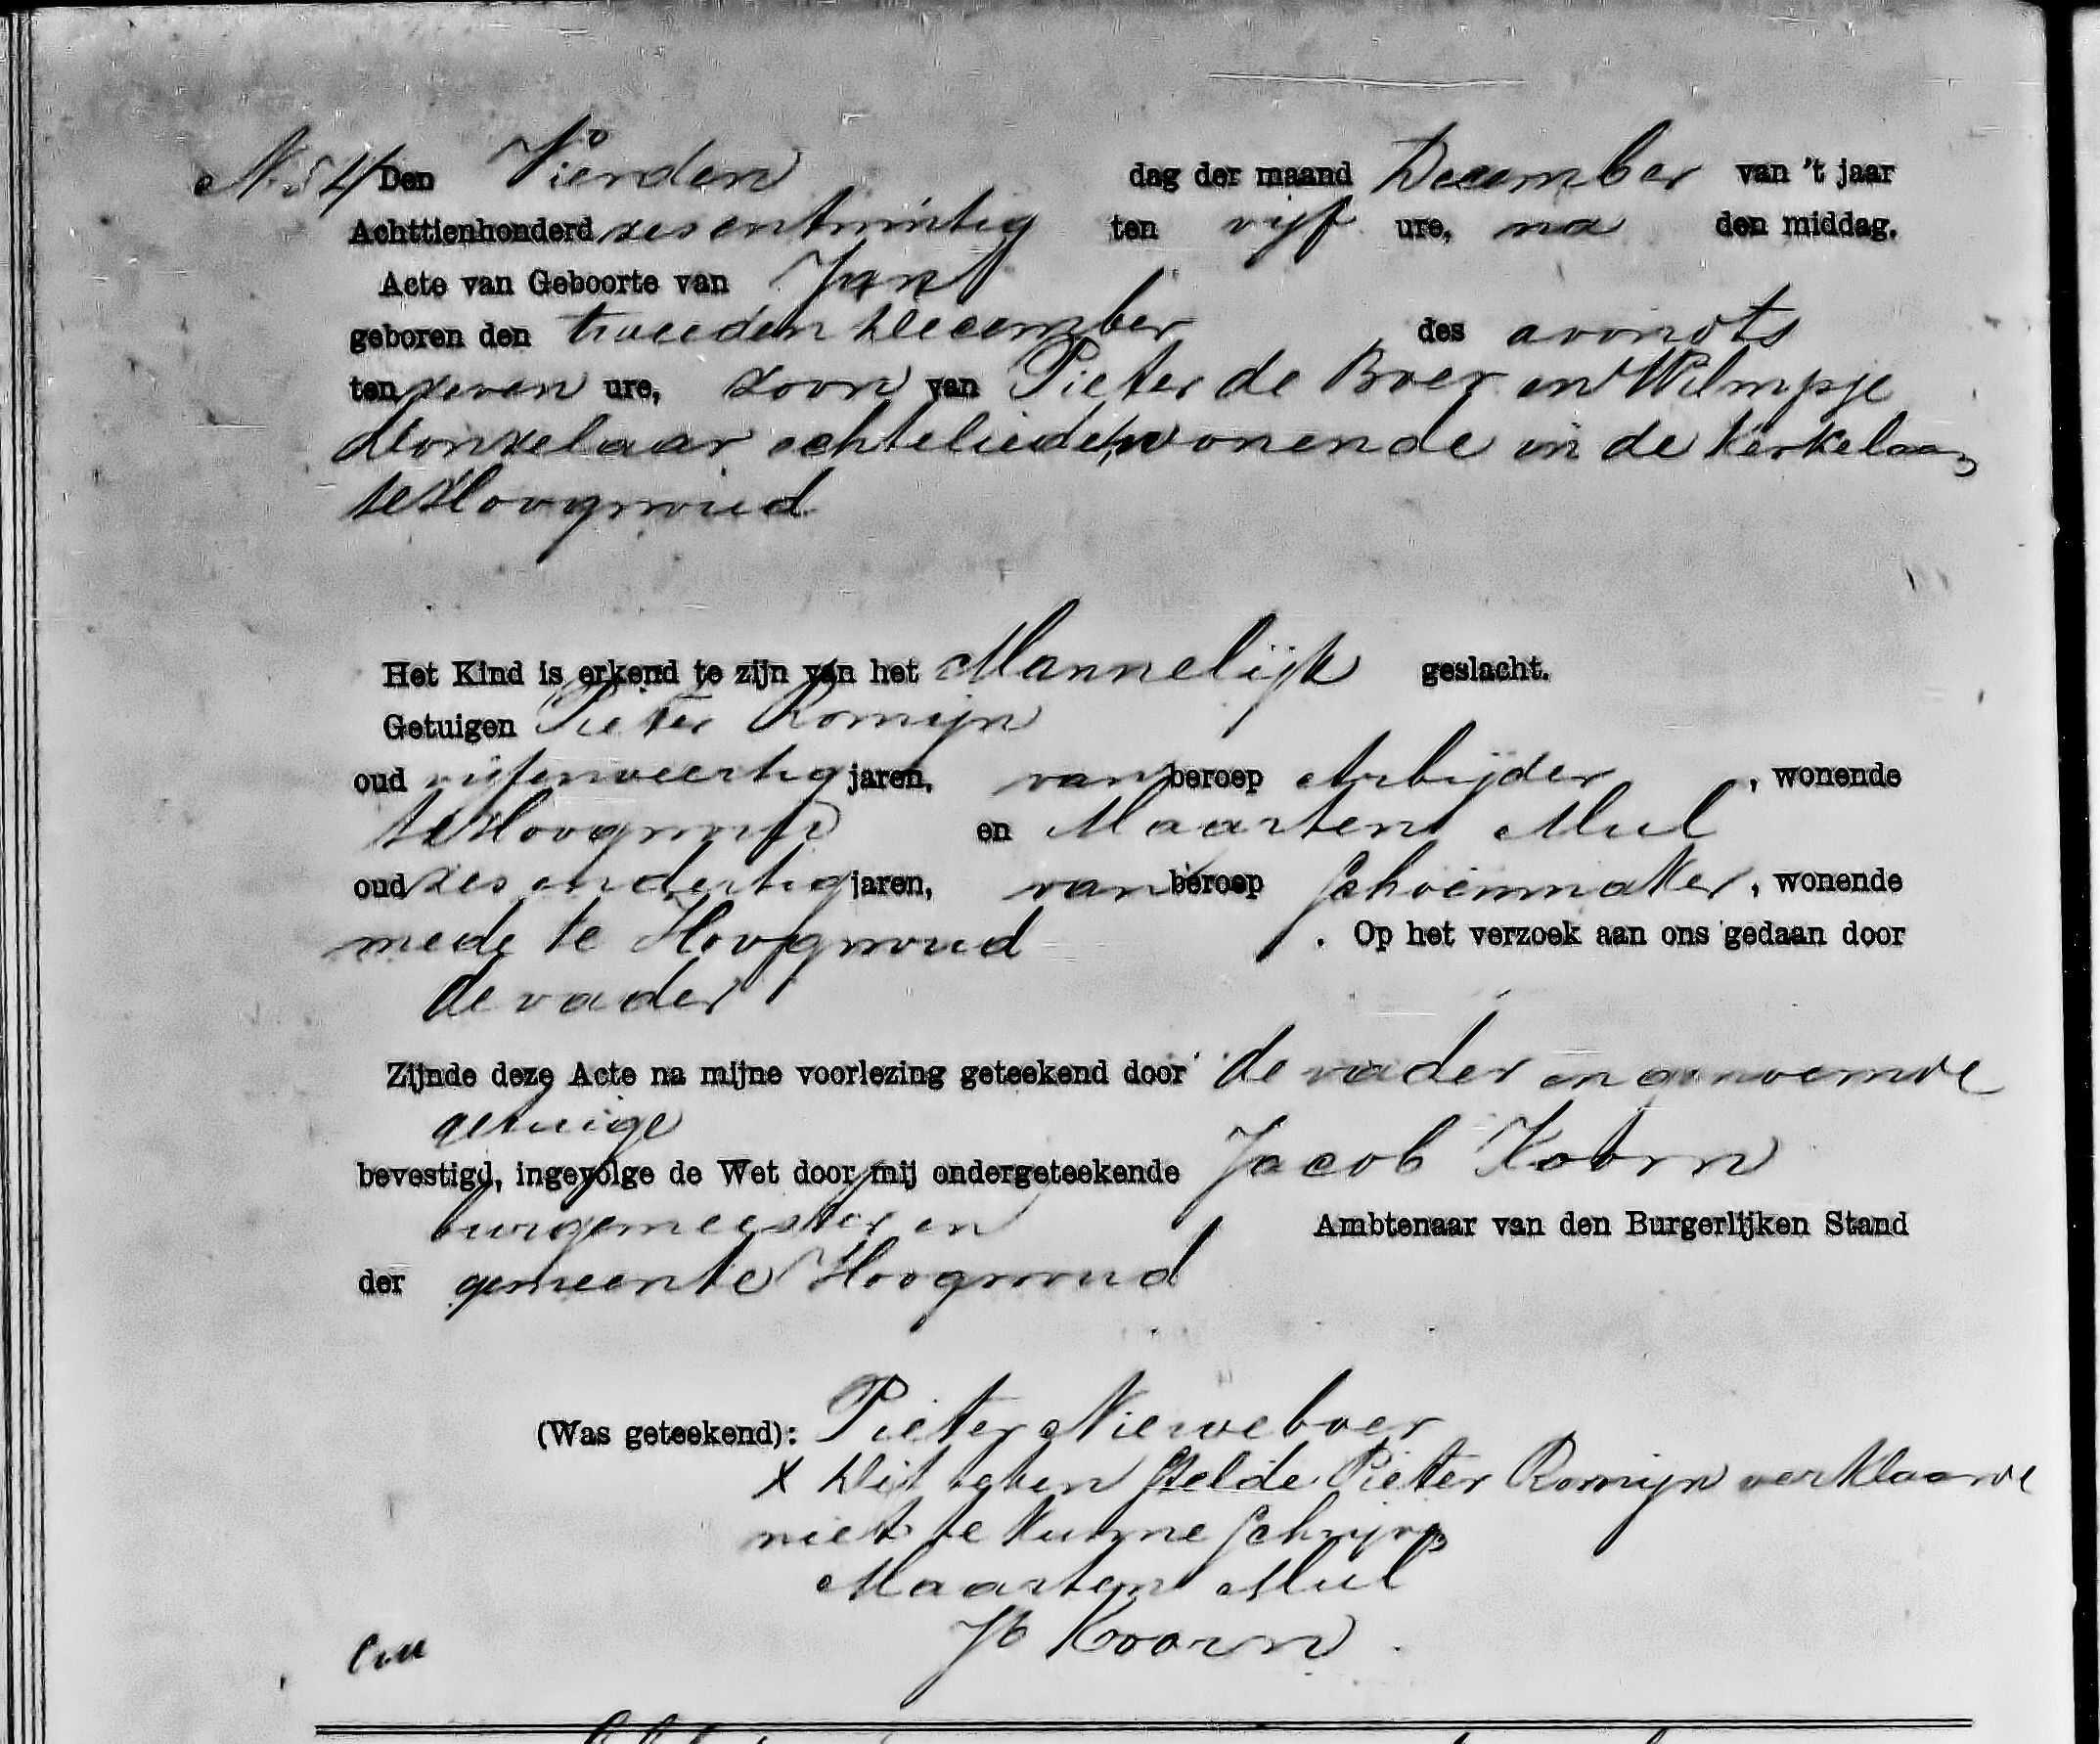 N. 54 Den Vierden dag der maand December van 't jaar
Achttienhonderd zes en twintig ten vijf ure, na den middag.
Acte van Geboorte van Jan
geboren den tweeden December des avondts
ten zeven ure, zoon van Pieter de Boer en Wilmpje
Donselaar echtelieden, wonende in de Kerkelaan
te Hoogwoud
Het Kind is erkend te zijn van het Mannelijk geslacht.
Getuigen Pieter Romijn
oud vijfenveertig jaren, van beroep Arbijder, wonende
te Hoogwoud en Maarten Mul
oud zes en dertig jaren, van beroep Schoenmaker, wonende
mede te Hoogwoud. Op het verzoek aan ons gedaan door
de vader
Zijnde deze Acte na mijne voorlezing geteekend door de vader en genoemde
getuige
bevestigd, ingevolge de Wet door mij ondergeteekende Jacob Koorn
burgemeester en Ambtenaar van den Burgerlijken Stand
der gemeente Hoogwoud
(Was geteekend): Pieter Nieweboer
X Dit teken stelde Pieter Romijn verklaarde
niet te kunne schrijve
Maarten Mul
Jb Koorn.